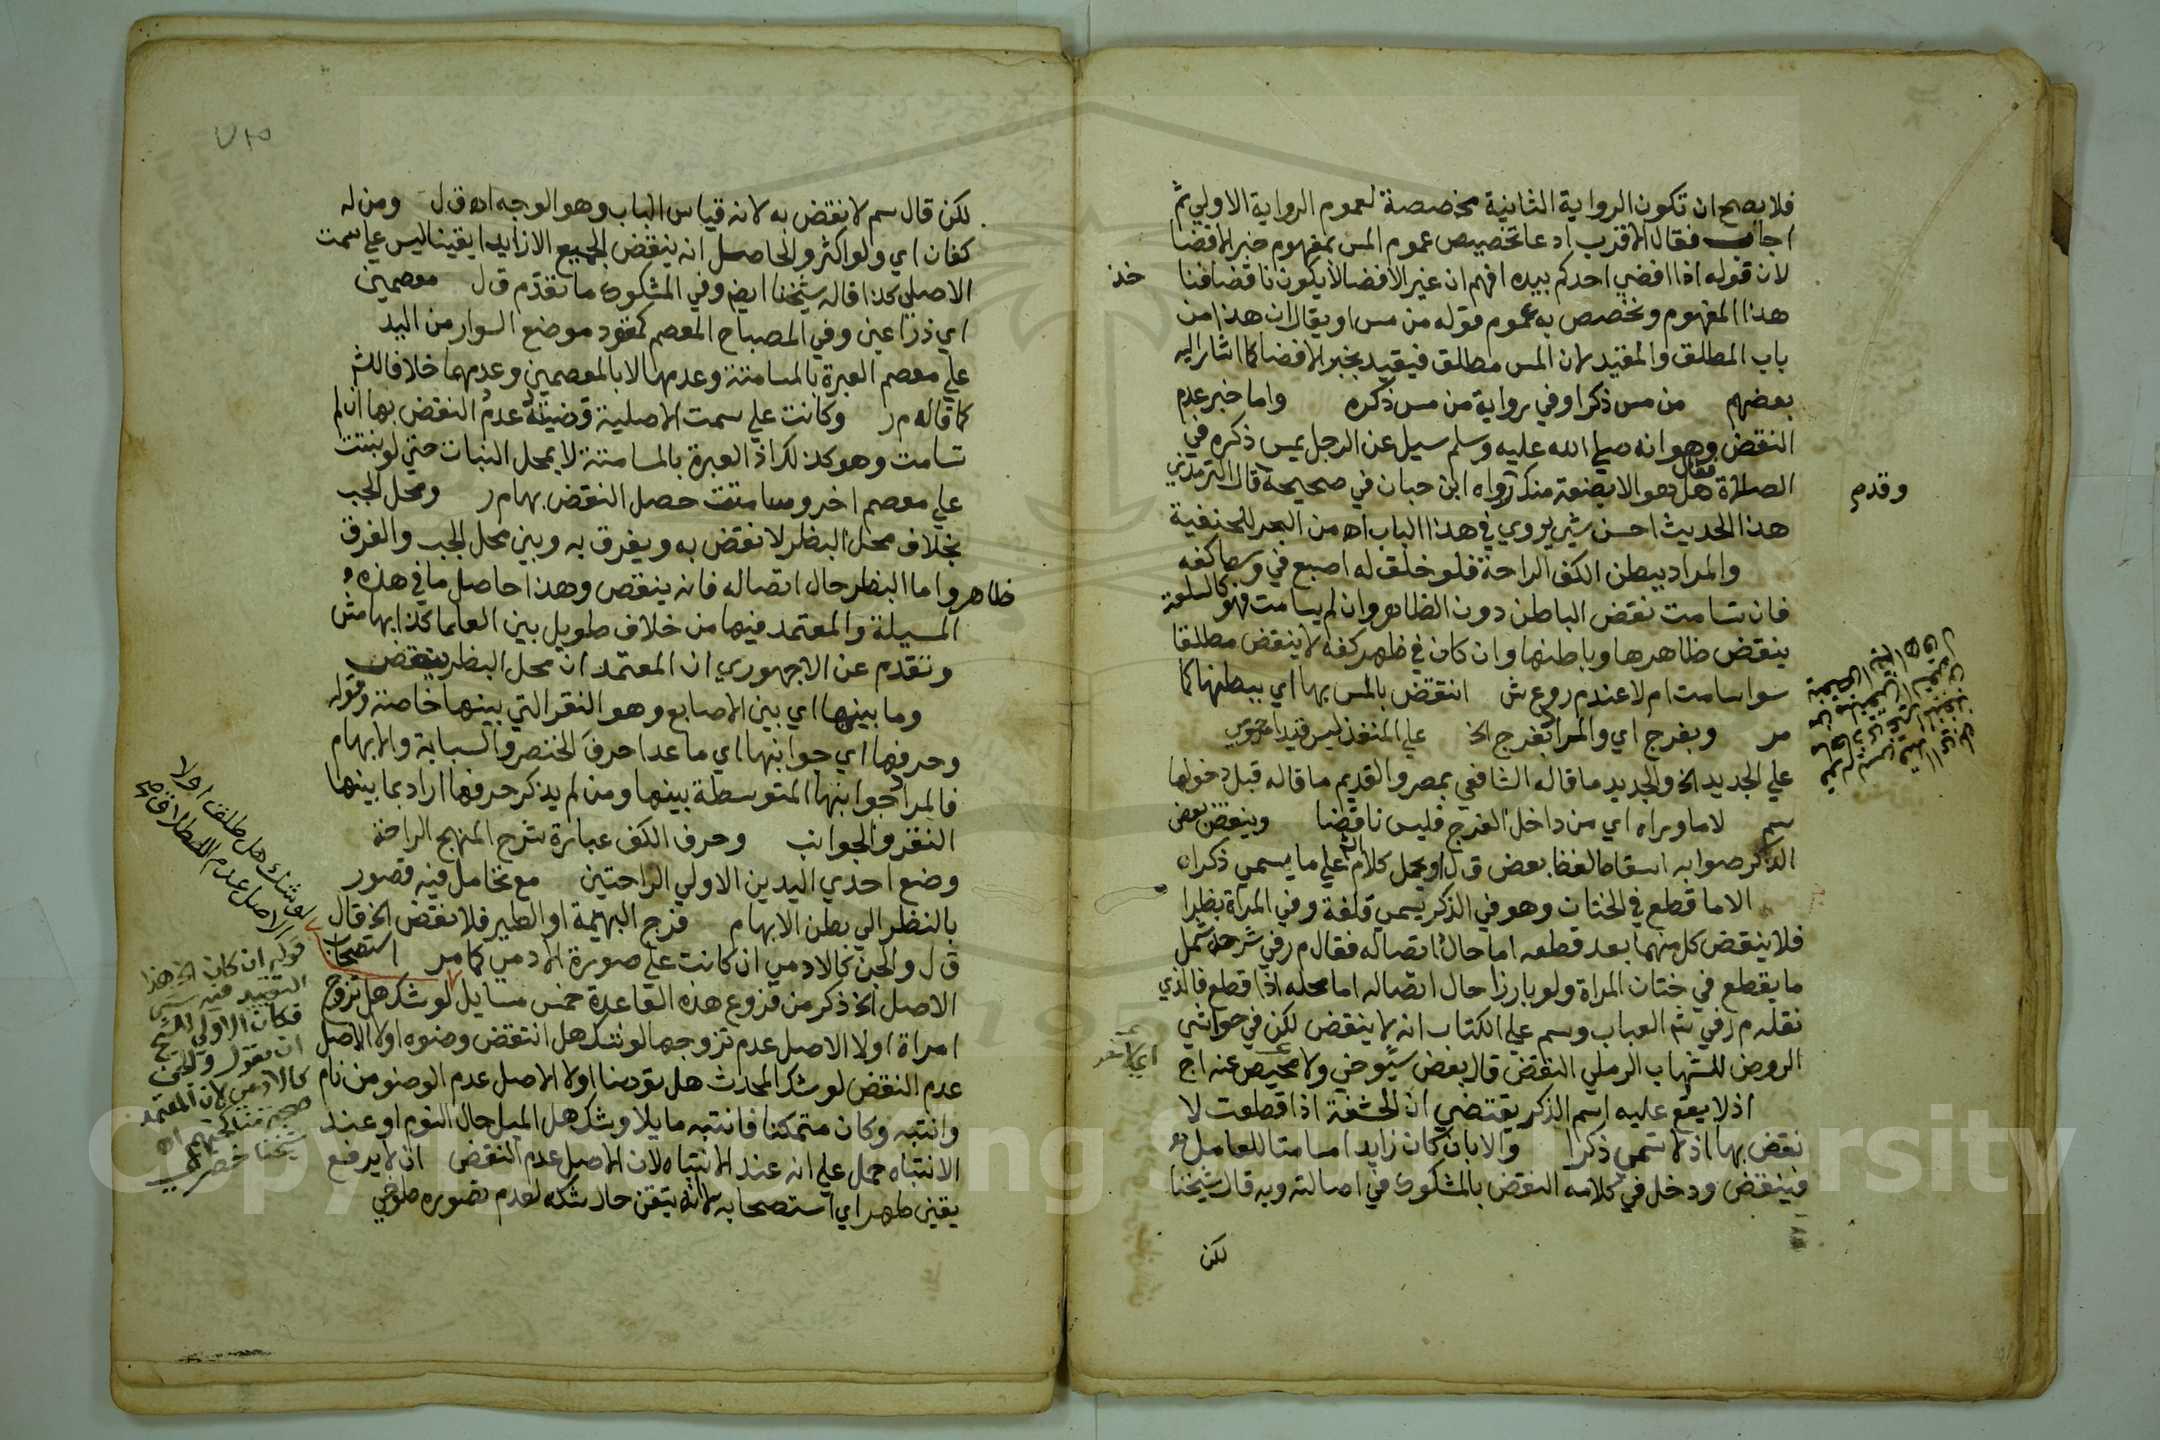 فلا يصح ان تكون الرواية الثانية مخصصة لعموم الرواية الاولي ثم
اجاب فقال الاقرب ادعا تخصيص عموم المس بمفهوم خبر الافضا
لان قوله اذا افضي احدكم بيده افهم ان غير الافضا لا يكون ناقضا فنا
خذ
هذا المفهوم ونخصص به عموم قوله من مس او يقال ان هذا من
باب المطلق والمقيد لان المس مطلق فيقيد بخبر الافضا كما اشار اليه
بعضهم من مس ذكرا وفي رواية من مس ذكره واما خبر عدم
النقض وهو انه صلي الله عليه وسلم سيل عن الرجل يمس ذكره في
الصلاة فقال هل هو الا بضعة منك رواه ابن حبان في صحيحه قال الترمذي
وقدم
هذا الحديث احسن شي يروي في هذا الباب اه من البحر للحنفية
والمراد ببطن الكف الراحة فلو خلق له اصبع في وسط كفه
فان سامت نقض الباطن دون الظاهر وان لم يسامت فهو كالسلعة
ينقض ظاهرها وباطنها وان كان في ظهر كفه لا ينقض مطلقا
سوا سامت ام لا عند م ر و ع ش انتقض بالمس بها اي ببطنها كما
مر وبفرج اي والمراد بفرج الخ علي المنفذ ليس قيدا
علي الجديد الخ والجديد ما قاله الشافعي بمصر والقديم ما قاله قبل دخولها
سم لا ما وراه اي من داخل الفرج فليس ناقضا وينقض بعض
الذكر صوابه اسقاط لفظ بعض ق ل او يحمل كلامه علي ما يسمي ذكرا اه
الا ما قطع في الختان وهو في الذكر يسمي قلفة وفي المراة بظرا
فلا ينقض كل منهما بعد قطعه اما حال اتصاله فقال م ر في شرحه شمل
ما يقطع في ختان المراة ولو بارزا حال اتصاله اما محله اذا قطع فالذي
نقله م ر في شم العباب وسم علي الكتاب انه لا ينقض لكن في حواشي
الروض للشهاب الرملي النقض قال بعض شيوخي ولا محيص عنه اج
اذ لا يقع عليه اسم الذكر يقتضي ان الحشفة اذا قطعت لا
نقض بها اذ لا تسمي ذكرا والا بان كان زايدا مسامتا للعامل
فينقض ودخل في كلامه النقض بالمشكوك في اصالته وبه قال شيخنا
لكن
لكن قال سم لا نقض به لانه قياس الباب وهو الوجه اه ق ل ومن له
كفان اي ولو اكثر والحاصل انه ينقض الجميع الا زايدا يقينا ليس علي سمت
الاصلي كذا قاله شيخنا ايضم وفي المشكوك ما تقدم ق ل معصمين
اي ذراعين وفي المصباح المعصم كمقود موضع السوار من اليد
علي معصم العبرة بالمسامتة وعدمها لا بالمعصمين وعدمهما خلافا للشم
كما قاله م ر وكانت علي سمت الاصلية قضيته عدم النقض بها ان لم
تسامت وهو كذلك اذ العبرة بالمسامتة لا بمحل النبات حتي لو نبتت
علي معصم اخر وسامتت حصل النقض بها م ر ومحل الجب
بخلاف محل البظر لا نقض به ويفرق به وبين محل الجب والفرق
ظاهر واما البظر حال اتصاله فانه ينقض وهذا حاصل ما في هذه
المسيلة والمعتمد فيها من خلاف طويل بين العلما كذا بهامش
وتقدم عن الاجهوري ان المعتمد ان محل البظر ينقض
وما بينها اي بين الاصابع وهو النقر التي بينها خاصة وقوله
وحرفها اي جوانبها اي ما عدا حرف الخنصر والسبابة والابهام
فالمراد جوانبها المتوسطة بينها ومن لم يذكر حرفها اراد بما بينها
النقر والجوانب وحرف الكف عبارة شرح المنهج الراحة
وضع احدي اليدين الاولي الراحتين مع تحامل فيه قصور
بالنظر الي بطن الابهام فرج البهيمة او الطير فلا نقض الخ قال
ق ل والجن كالادمي ان كانت علي صورة الادمي كما مر استصحاب
الاصل الخ ذكر من فروع هذه القاعدة خمس مسايل لو شك هل تزوج
امراة اولا الاصل عدم تزوجها لو شك هل انتقض وضوه اولا الاصل
عدم النقض لو شك المحدث هل توضا اولا الاصل عدم الوضو من نام
وانتبه وكان متمكنا فانتبه مايلا وشك هل الميل حال النوم او عند
الانتباه حمل علي انه عند الانتباه لان الاصل عدم النقض ان لا يرفع
يقين طهر اي استصحابه لانه يتقن حال شكه لعدم تصوره طوخي
لو شك هل طلقت اولا
الاصل عدم الطلاق
قوله ان كان الخ هذا
التقييد فيه شي
فكان الاولي للشم
ان يقول والجن
كالادمي لان المعتمد
صحة مناكحتهم اه
شيخنا خضري
Copy King Saud University